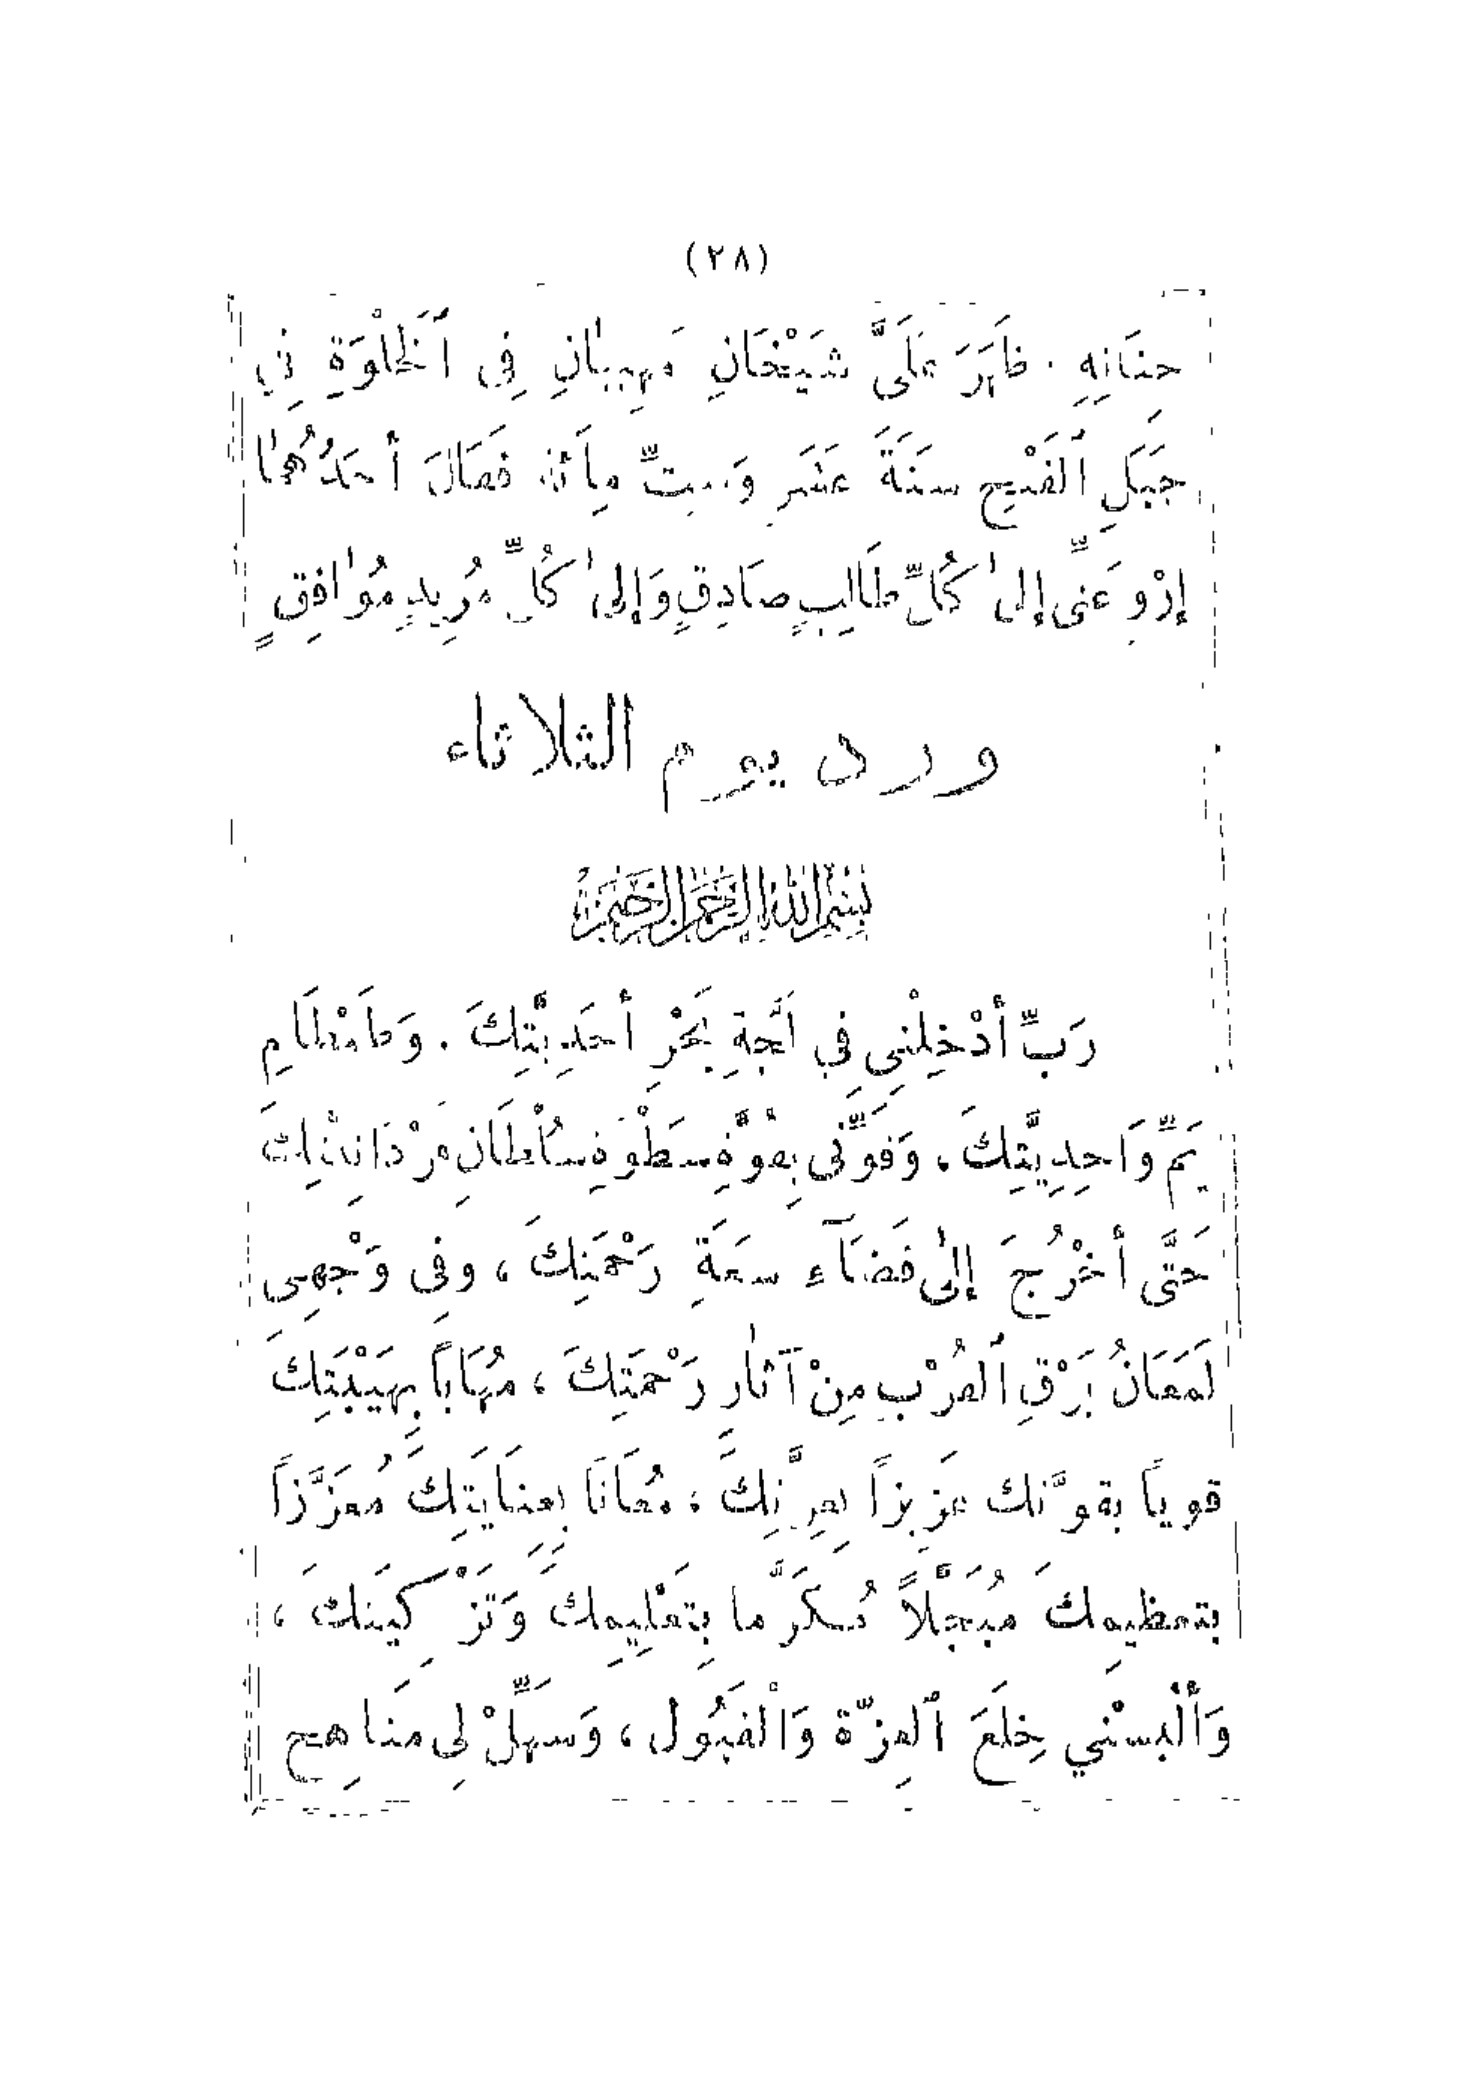 (٢٨)
جِنَانِهِ . ظَهَرَ عَلَىَّ شَيْخَانِ مَهِيبَانِ فِى ٱلْخَلْوَةِ فِى
جَبَلِ ٱلْفَتْحِ سَنَةَ عَشَرِ وَسِتِّ مِأَئة فَقَالَ أحَدُهُمٰا
إرْوِ عَنِّى إلىٰ كُلِّ طَالِبٍ صَادِقٍ وَإلىٰ كُلِّ مُرِيدٍ مُوٰافِقٍ
ورد يوم الثلاثاء
بِسْمِ اللَّهِ الرَّحْمَنِ الرَّحِيمِ
رَبِّ أدْخِلْنِى فِي لُجَّةِ بَحْرِ أحَدِيَّتِكَ . وَطَمْطَامِ
يَمِّ وَاحِدِيَّتِكَ ، وَقَوِّنِى بِقُوَّةِ سَطْوَةِ سُلْطَانِ فَرْدَانِيَّتِكَ
حَتَّى أخْرُجَ إلىٰ فَضَآءِ سَعَةِ رَحْمَتِكَ ، وفِى وَجْهِى
لَمَعَانُ بَرْقِ ٱلْقُرْبِ مِنْ آثٰارِ رَحْمَتِكَ ، مُهَابَاً بِهَيْبَتِكَ
قوياً بقوَّتك عَزِيزاً بِعِزَّتِكَ ، مُعَانَا بِعِنَايَتِكَ مُعَزَّزاً
بتعظيمِكَ مُبَجَّلاً مُكَرَّما بِتَعْلِيمِك وَتَزْكِيَتِكَ ،
وَألْبِسْنِي خِلَعَ ٱلْعِزّة وَالْقَبُول ، وَسَهِّلْ لِى مَنَاهِج